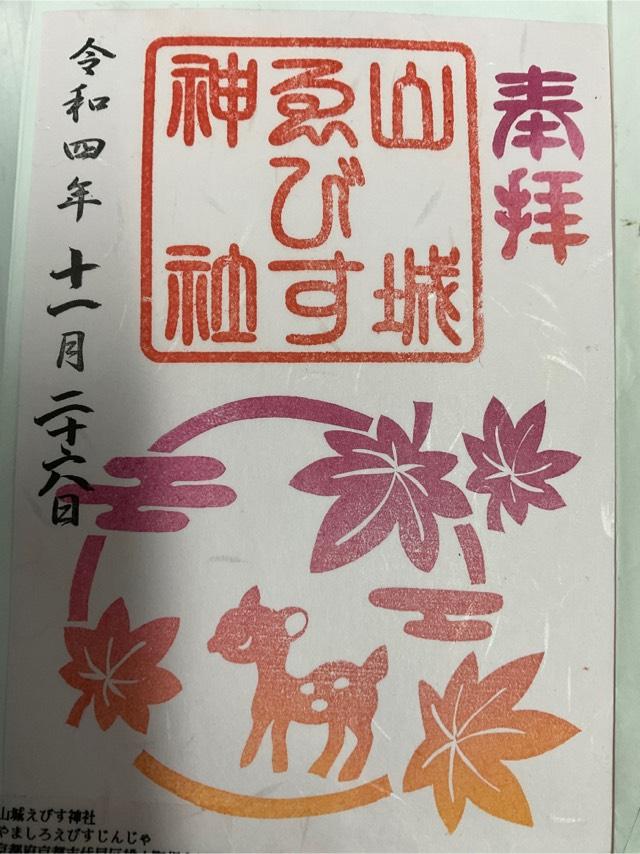 奉拝
山城
ゑびす
神社
令和四年十一月二十六日
山城えびす神社
やましろえびすじんじゃ